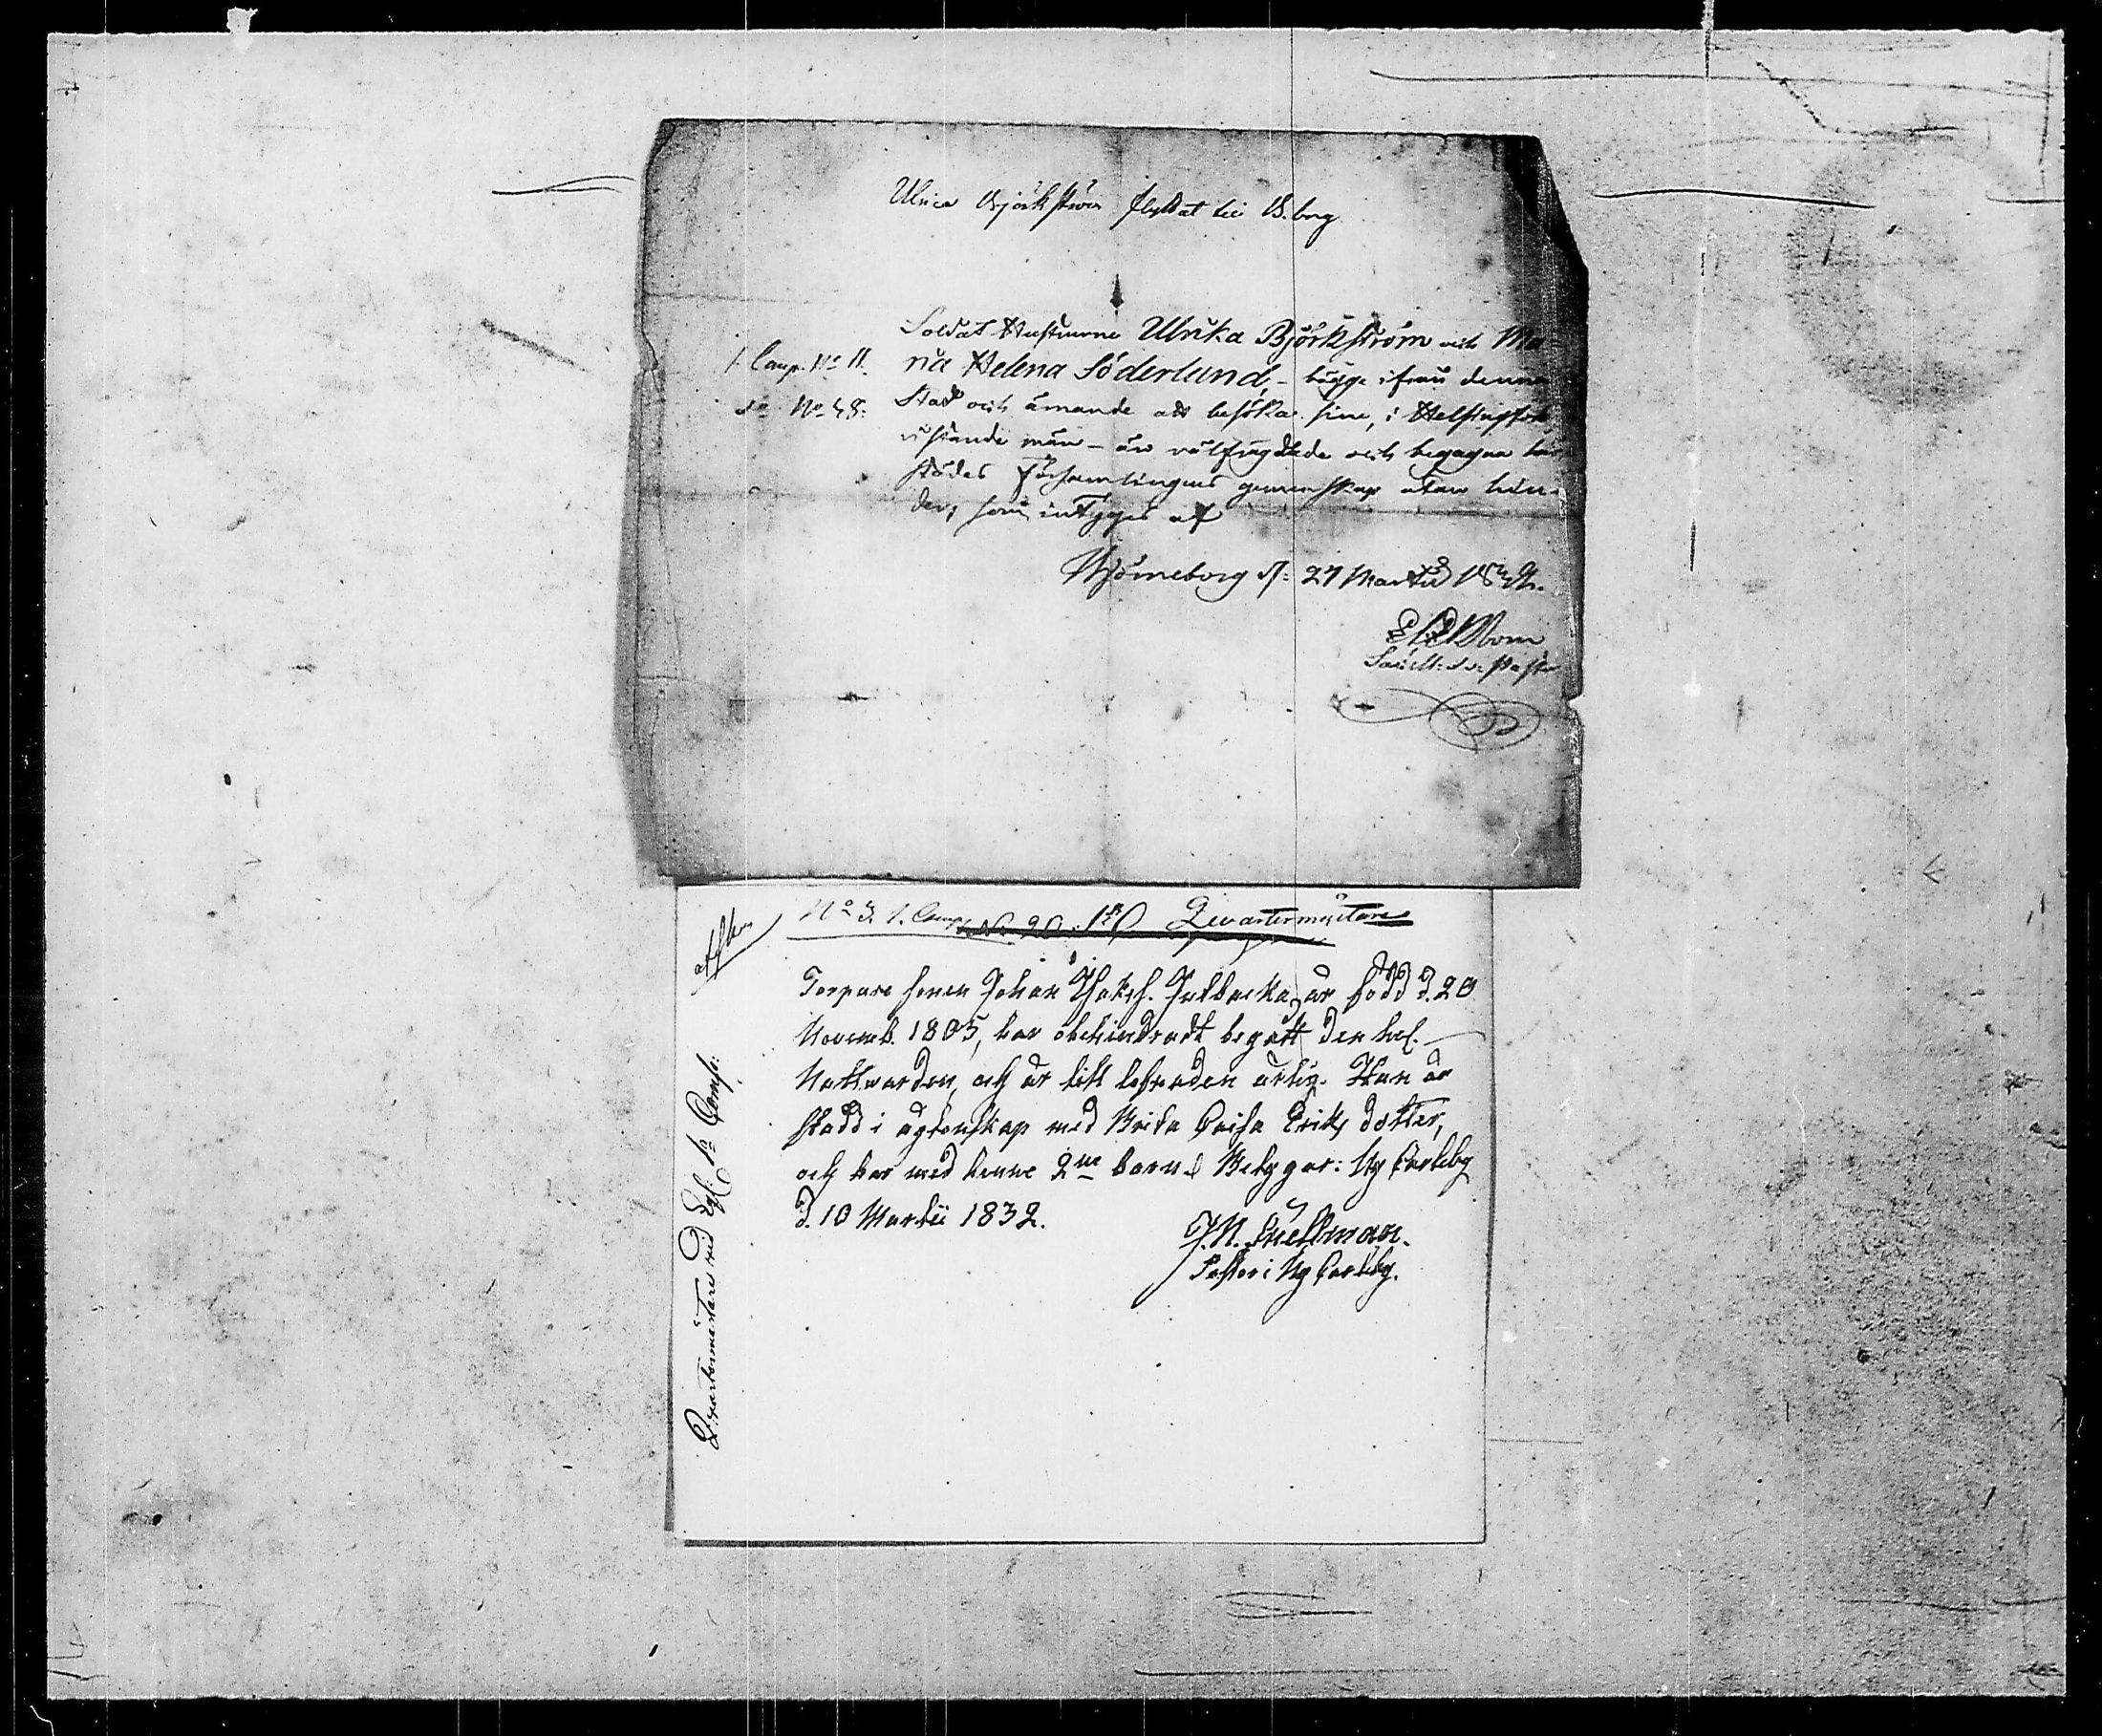 Ulrica Björkström flyttat till Wiborg
Soldat Hustrurne Ulrika Björkström och Ma-
1. Comp. No 11. ria Helena Söderlund, - bägge ifrån denna
do No 48: Stad och ämnande att besöka sine, i Helsingfors
vistande män - äro välfrägdade och begagna här-
städes Församlingens gemenskap utan hin-
der, som intygas af
Björneborg d: 27 Martii 1832.
No 3. 1. Comp. No 20. 1sta Qvartermästare
Torpare sonen Johan Isaks. Jutbacka är född d. 20
Novemb. 1805, har obehindradt begått den hel.
Nattwarden, och är till lefnaden ärlig. Han är
stadd i ägtenskap med Brita Caisa Eriks dotter,
och har med henne 2ne barn. Betygar: Ny Carleby
d. 10 Martii 1832.
J.N. Snellman.
Pastor i Ny Carleby.
Qvartermästare vid 1a Comp: